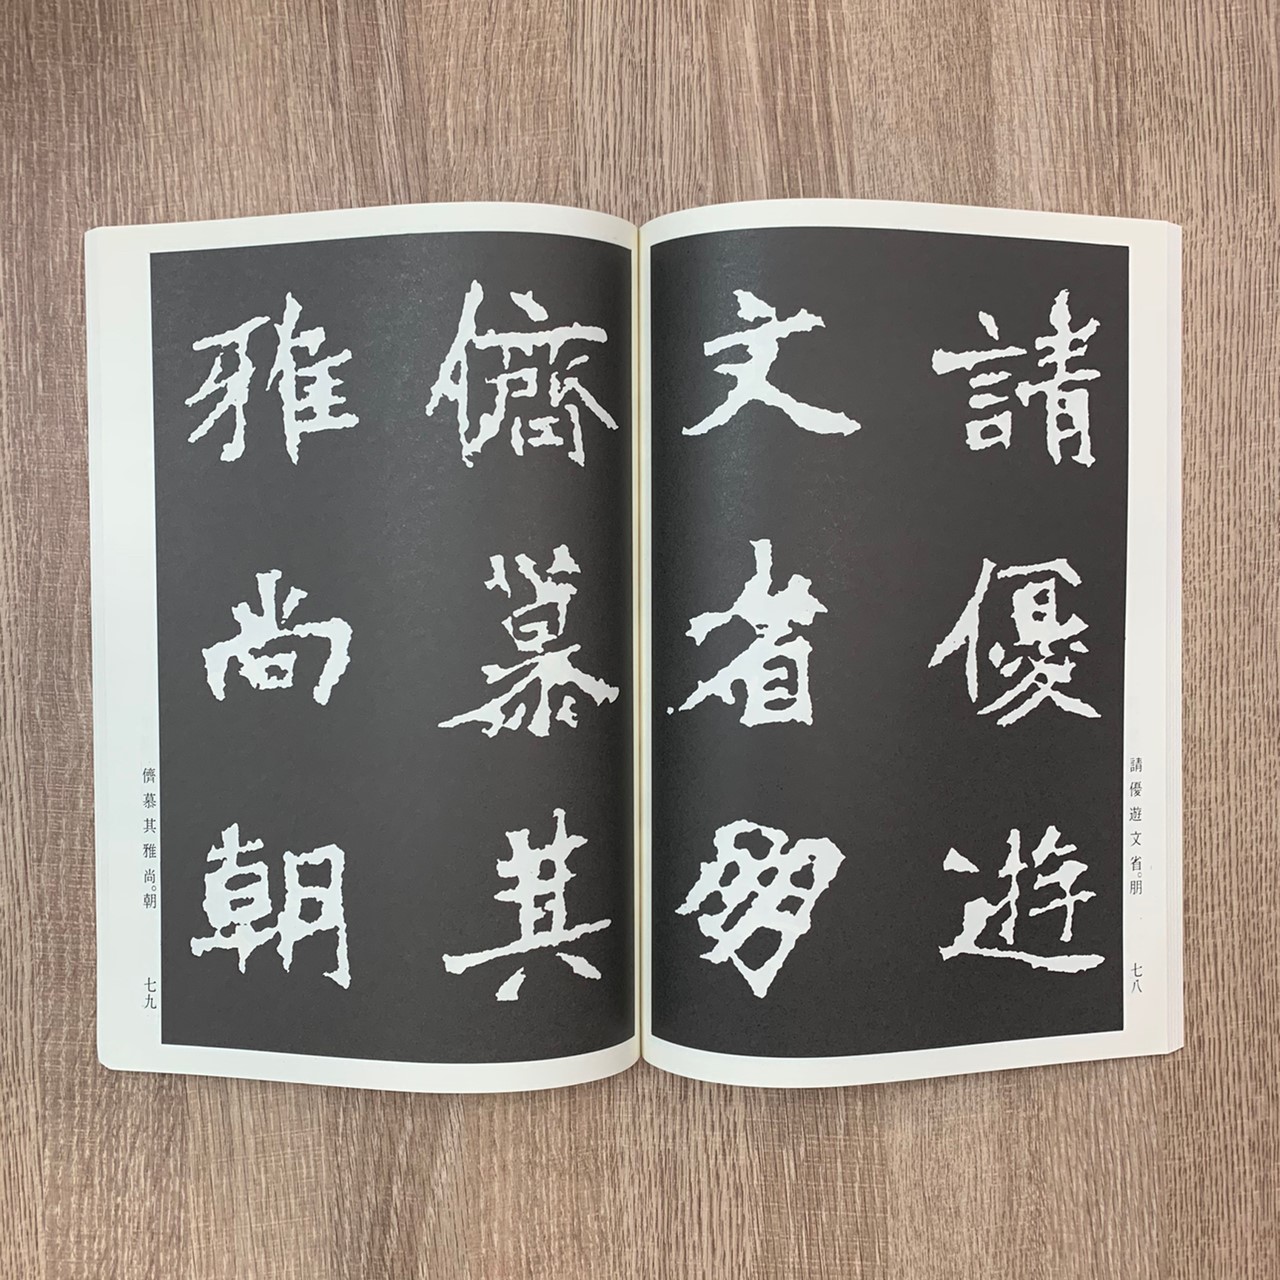 請優遊
文省朋
請優遊文省。朋
七八
儕慕其
雅尚朝
儕慕其雅尚。朝
七九